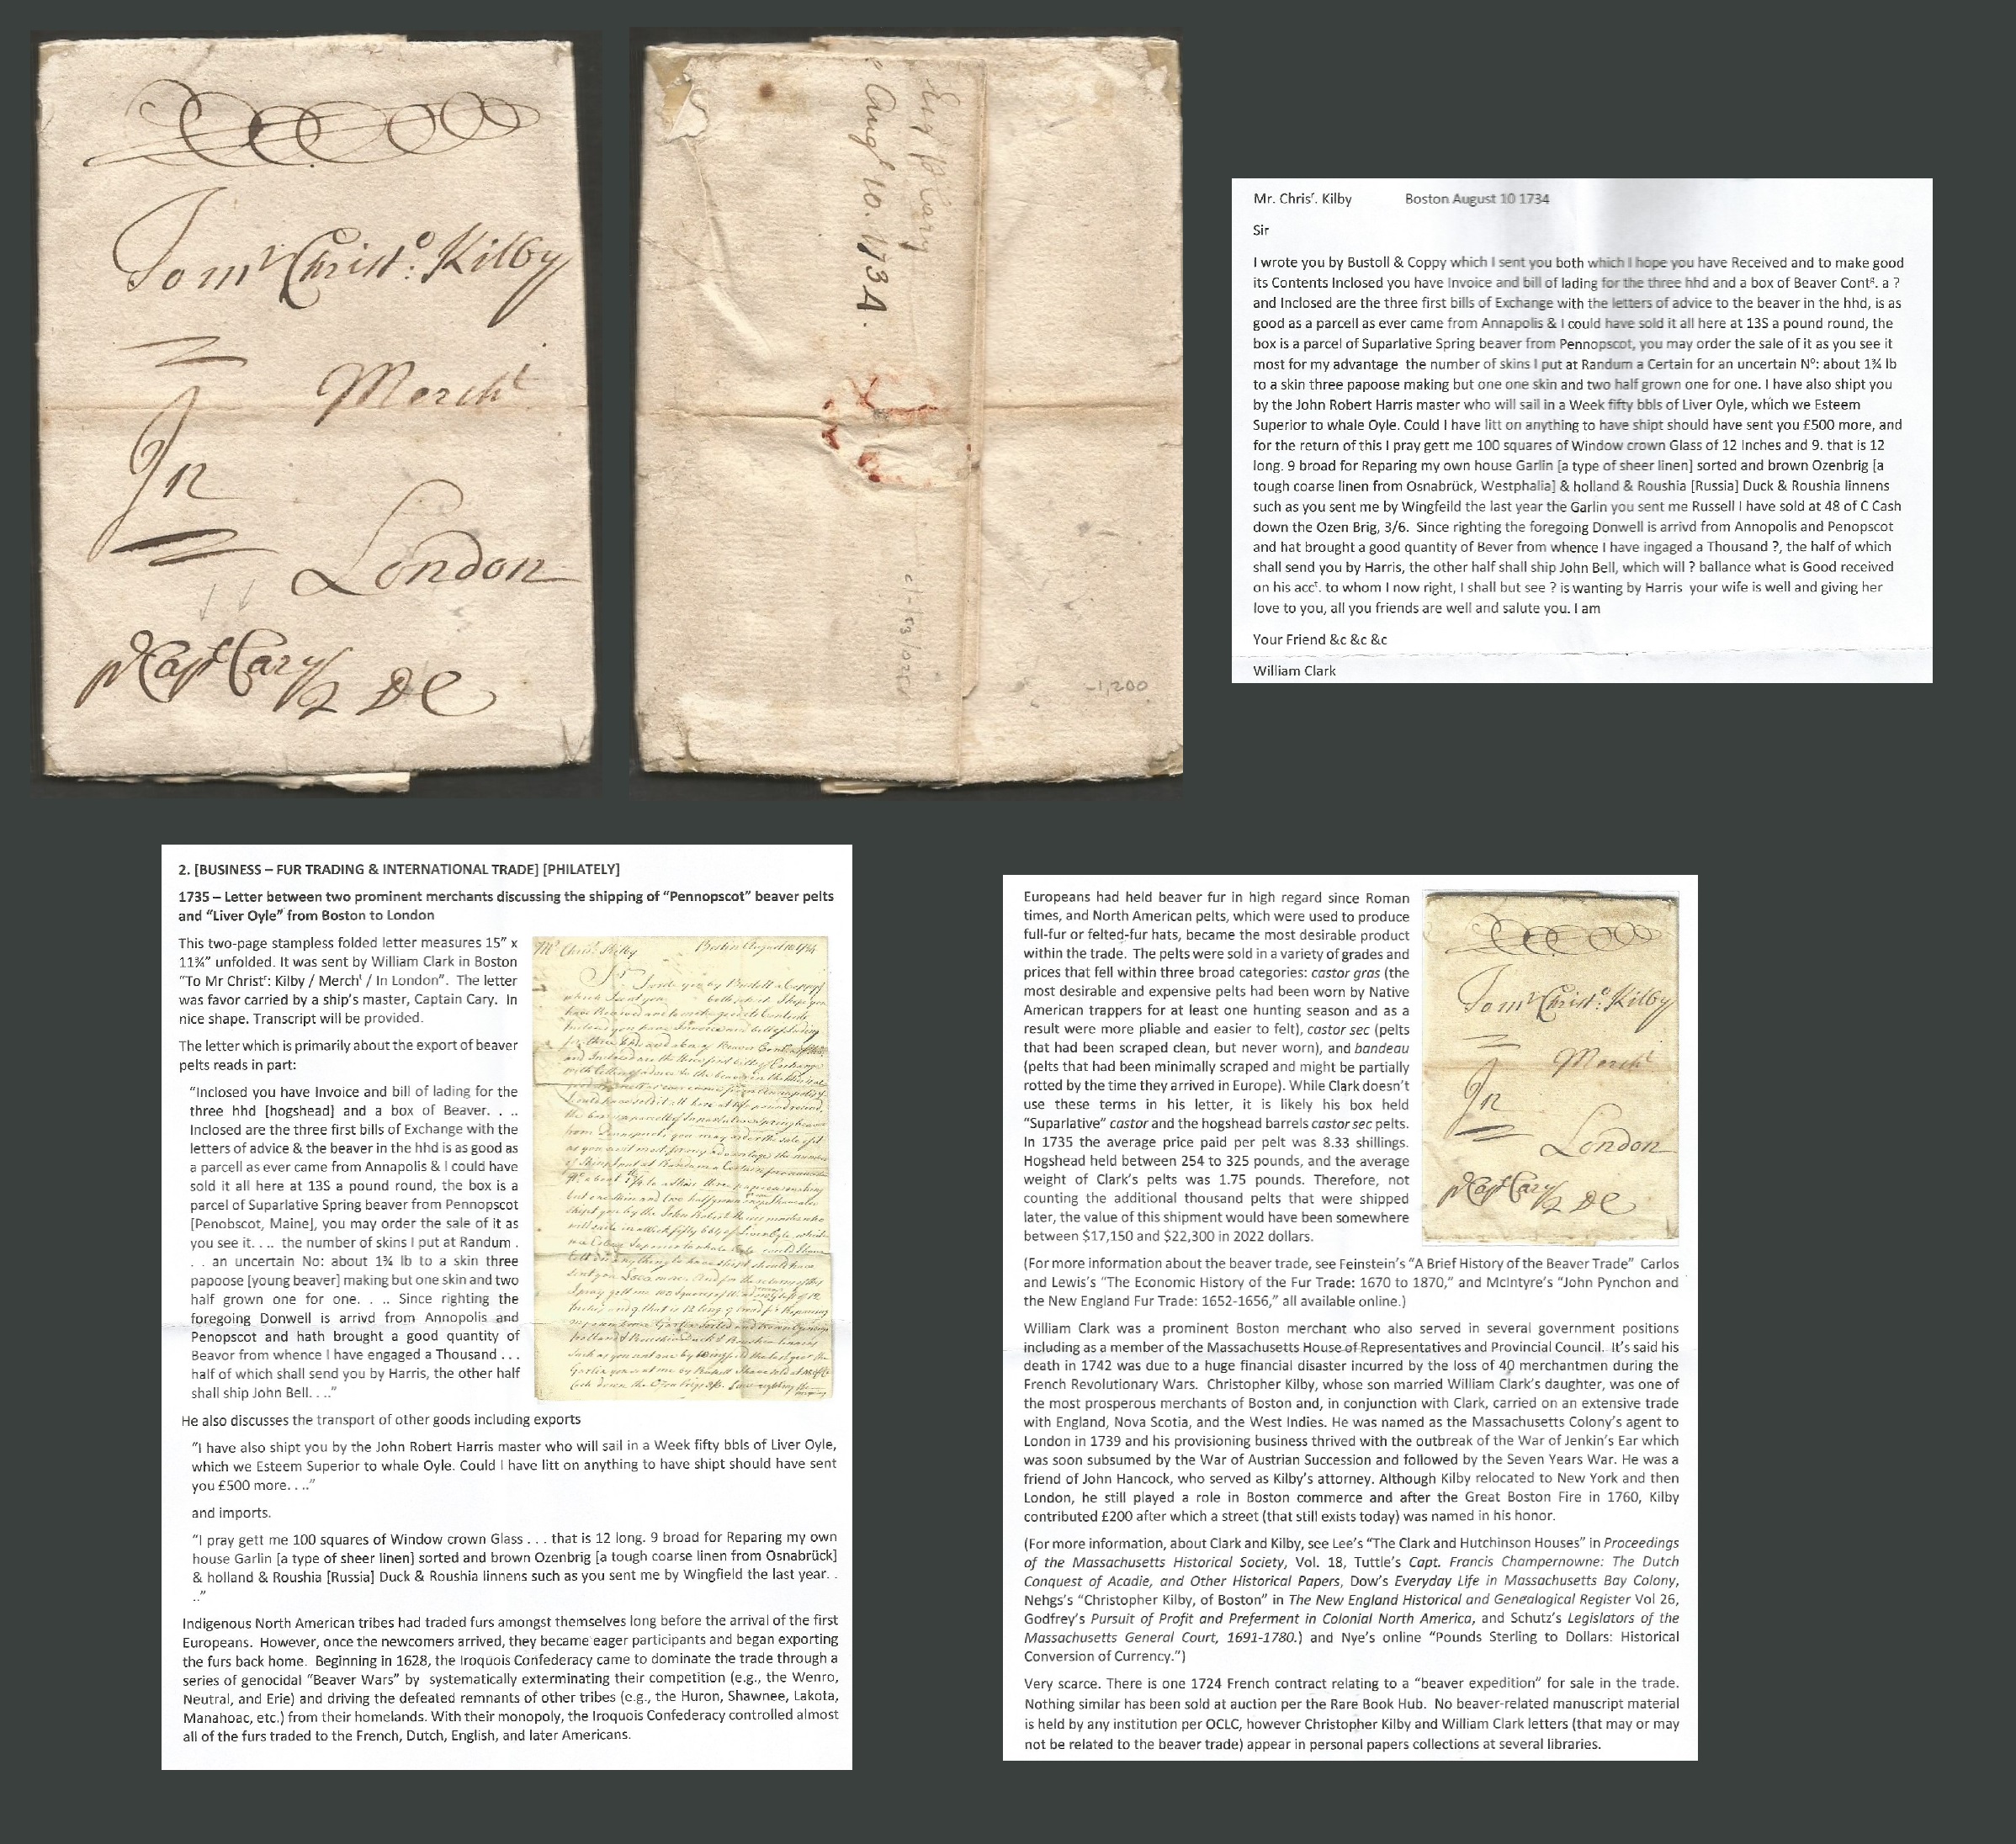 To mr. Christo: Kilby
Mercht
In
London
pr Capt Cary
2 D C
Augt 10. 1734.
-1,200
Mr. Chrisr. Kilby Boston August 10 1734
Sir
I wrote you by Bustoll & Coppy which I sent you both which I hope you have Received and to make good
its Contents Inclosed you have Invoice and bill of lading for the three hhd and a box of Beaver Contg. a ?
and Inclosed are the three first bills of Exchange with the letters of advice to the beaver in the hhd, is as
good as a parcell as ever came from Annapolis & I could have sold it all here at 13S a pound round, the
box is a parcel of Suparlative Spring beaver from Pennopscot, you may order the sale of it as you see it
most for my advantage the number of skins I put at Randum a Certain for an uncertain No: about 1¾ lb
to a skin three papoose making but one one skin and two half grown one for one. I have also shipt you
by the John Robert Harris master who will sail in a Week fifty bbls of Liver Oyle, which we Esteem
Superior to whale Oyle. Could I have litt on anything to have shipt should have sent you £500 more, and
for the return of this I pray gett me 100 squares of Window crown Glass of 12 Inches and 9. that is 12
long. 9 broad for Reparing my own house Garlin [a type of sheer linen] sorted and brown Ozenbrig [a
tough coarse linen from Osnabrück, Westphalia] & holland & Roushia [Russia] Duck & Roushia linnens
such as you sent me by Wingfeild the last year the Garlin you sent me Russell I have sold at 48 of C Cash
down the Ozen Brig, 3/6. Since righting the foregoing Donwell is arrivd from Annopolis and Penopscot
and hat brought a good quantity of Bever from whence I have ingaged a Thousand ?, the half of which
shall send you by Harris, the other half shall ship John Bell, which will ? ballance what is Good received
on his acct. to whom I now right, I shall but see ? is wanting by Harris your wife is well and giving her
love to you, all you friends are well and salute you. I am
Your Friend &c &c &c
William Clark
2. [BUSINESS – FUR TRADING & INTERNATIONAL TRADE] [PHILATELY]
1735 – Letter between two prominent merchants discussing the shipping of “Pennopscot” beaver pelts
and “Liver Oyle” from Boston to London
This two-page stampless folded letter measures 15” x
11¾” unfolded. It was sent by William Clark in Boston
“To Mr Christr: Kilby / Mercht / In London”. The letter
was favor carried by a ship’s master, Captain Cary. In
nice shape. Transcript will be provided.
The letter which is primarily about the export of beaver
pelts reads in part:
“Inclosed you have Invoice and bill of lading for the
three hhd [hogshead] and a box of Beaver. . ..
Inclosed are the three first bills of Exchange with the
letters of advice & the beaver in the hhd is as good as
a parcell as ever came from Annapolis & I could have
sold it all here at 13S a pound round, the box is a
parcel of Suparlative Spring beaver from Pennopscot
[Penobscot, Maine], you may order the sale of it as
you see it. . .. the number of skins I put at Randum .
. . an uncertain No: about 1¾ lb to a skin three
papoose [young beaver] making but one skin and two
half grown one for one. . .. Since righting the
foregoing Donwell is arrivd from Annopolis and
Penopscot and hath brought a good quantity of
Beavor from whence I have engaged a Thousand . . .
half of which shall send you by Harris, the other half
shall ship John Bell. . ..”
He also discusses the transport of other goods including exports
“I have also shipt you by the John Robert Harris master who will sail in a Week fifty bbls of Liver Oyle,
which we Esteem Superior to whale Oyle. Could I have litt on anything to have shipt should have sent
you £500 more. . ..”
and imports.
“I pray gett me 100 squares of Window crown Glass . . . that is 12 long. 9 broad for Reparing my own
house Garlin [a type of sheer linen] sorted and brown Ozenbrig [a tough coarse linen from Osnabrück]
& holland & Roushia [Russia] Duck & Roushia linnens such as you sent me by Wingfield the last year. .
..”
Indigenous North American tribes had traded furs amongst themselves long before the arrival of the first
Europeans. However, once the newcomers arrived, they became eager participants and began exporting
the furs back home. Beginning in 1628, the Iroquois Confederacy came to dominate the trade through a
series of genocidal “Beaver Wars” by systematically exterminating their competition (e.g., the Wenro,
Neutral, and Erie) and driving the defeated remnants of other tribes (e.g., the Huron, Shawnee, Lakota,
Manahoac, etc.) from their homelands. With their monopoly, the Iroquois Confederacy controlled almost
all of the furs traded to the French, Dutch, English, and later Americans.
Mr. Christ. Kilby Boston August 10 1734
Europeans had held beaver fur in high regard since Roman
times, and North American pelts, which were used to produce
full-fur or felted-fur hats, became the most desirable product
within the trade. The pelts were sold in a variety of grades and
prices that fell within three broad categories: castor gras (the
most desirable and expensive pelts had been worn by Native
American trappers for at least one hunting season and as a
result were more pliable and easier to felt), castor sec (pelts
that had been scraped clean, but never worn), and bandeau
(pelts that had been minimally scraped and might be partially
rotted by the time they arrived in Europe). While Clark doesn’t
use these terms in his letter, it is likely his box held
“Suparlative” castor and the hogshead barrels castor sec pelts.
In 1735 the average price paid per pelt was 8.33 shillings.
Hogshead held between 254 to 325 pounds, and the average
weight of Clark’s pelts was 1.75 pounds. Therefore, not
counting the additional thousand pelts that were shipped
later, the value of this shipment would have been somewhere
between $17,150 and $22,300 in 2022 dollars.
To mr. Christo: Kilby
Mercht
In
London
pr Capt Cary
2 D C
(For more information about the beaver trade, see Feinstein’s “A Brief History of the Beaver Trade” Carlos
and Lewis’s “The Economic History of the Fur Trade: 1670 to 1870,” and McIntyre’s “John Pynchon and
the New England Fur Trade: 1652-1656,” all available online.)
William Clark was a prominent Boston merchant who also served in several government positions
including as a member of the Massachusetts House of Representatives and Provincial Council. It’s said his
death in 1742 was due to a huge financial disaster incurred by the loss of 40 merchantmen during the
French Revolutionary Wars. Christopher Kilby, whose son married William Clark’s daughter, was one of
the most prosperous merchants of Boston and, in conjunction with Clark, carried on an extensive trade
with England, Nova Scotia, and the West Indies. He was named as the Massachusetts Colony’s agent to
London in 1739 and his provisioning business thrived with the outbreak of the War of Jenkin’s Ear which
was soon subsumed by the War of Austrian Succession and followed by the Seven Years War. He was a
friend of John Hancock, who served as Kilby’s attorney. Although Kilby relocated to New York and then
London, he still played a role in Boston commerce and after the Great Boston Fire in 1760, Kilby
contributed £200 after which a street (that still exists today) was named in his honor.
(For more information, about Clark and Kilby, see Lee’s “The Clark and Hutchinson Houses” in Proceedings
of the Massachusetts Historical Society, Vol. 18, Tuttle’s Capt. Francis Champernowne: The Dutch
Conquest of Acadie, and Other Historical Papers, Dow’s Everyday Life in Massachusetts Bay Colony,
Nehgs’s “Christopher Kilby, of Boston” in The New England Historical and Genealogical Register Vol 26,
Godfrey’s Pursuit of Profit and Preferment in Colonial North America, and Schutz’s Legislators of the
Massachusetts General Court, 1691-1780.) and Nye’s online “Pounds Sterling to Dollars: Historical
Conversion of Currency.”)
Very scarce. There is one 1724 French contract relating to a “beaver expedition” for sale in the trade.
Nothing similar has been sold at auction per the Rare Book Hub. No beaver-related manuscript material
is held by any institution per OCLC, however Christopher Kilby and William Clark letters (that may or may
not be related to the beaver trade) appear in personal papers collections at several libraries.